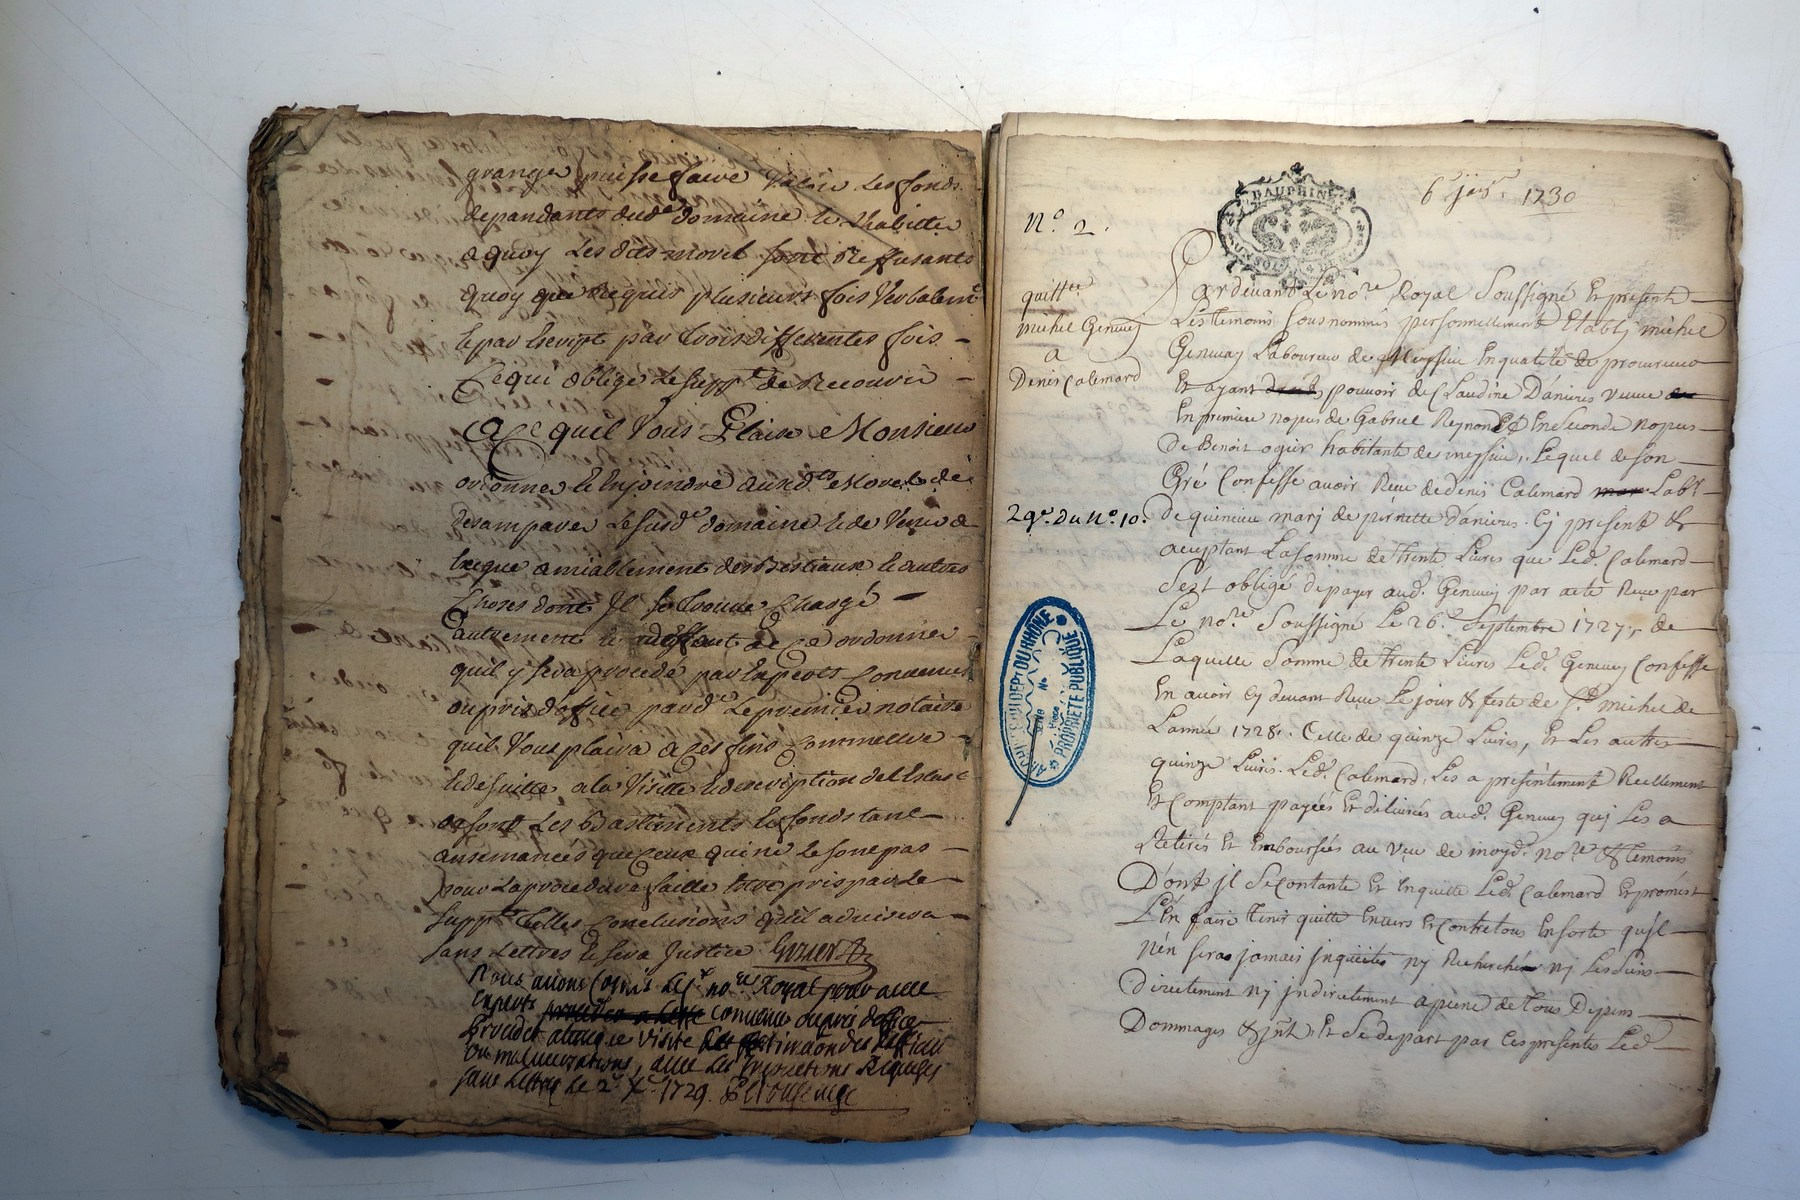 grange puisse faire valoir les fonds
dependants dud. domaine & l'habitter
a quoy les dits morel sont Reffusants
quoy que Requis plusieurs fois Verbalemt
& par Escript par trois differentes fois
Ce qui oblige le suppt de Recourir
A Ce quil Vous Plaise Monsieur
ordonner & Enjoindre auxdts Morel de
desamparer le susde domaine & de Venir a
amiablement des Bestiaux & autres
Choses dont Il se trouve Chargé
autrement & a deffaut de Ce ordonner
quil y sera procedé par Experts Convenus
ou pris d'office pard. le premier notaire
quil Vous plaira a Ces fins Commettre
& de suitte a la Visitte & description de l'Estat
ou sont les Bastiments & fonds tant
ansemancés que Ceux qui ne le sont pas
pour la procedure faitte Estre pris par le
suppt telles Conclusions quil advisera
sans Lettres & sera Justice
Nous avons Commis Le pr nore Royal pour avec
Experts convenus ou pris doffice
proceder a la Visite
ou malversations, avec les Requises
sans Lettre le 2e Xe 1729.
DAUPHINÉ
6e jer. 1730
No. 2.
quittce
michel Genevey
a
Denis Calemard
29e. Du No. 10.
Pardevant Le nore Royal Soussigné Et presents
Les temoins sous nommés personnellement Etably michel
Genevey Laboureur de Meyssieu En qualité de procureur
Et ayant pouvoir de Claudine D'anieres veuve
En premiere nopces de Gabriel Reynond Et En Seconde nopces
De Benoit ogier habitante de meyssieu, Lequel de son
Gré Confesse avoir Reçu de denis Calemard Labr
De quincieu mary de pernette d'anieres. Cy present &
aceptant La somme de trente Livres que Led. Calemard
S'est obligé de payer aud. Genevey par acte Reçu par
Le nore Soussigné Le 26e Septembre 1727, de
Laquelle Somme de trente Livres Led. Genevey Confesse
En avoir Cy devant Reçu Le jour & feste de St michel de
L'année 1728. Celle de quinze Livres, Et Les autres
quinze Livres. Led. Calemard, Les a presentement Reellement
Et Comptant payées Et délivrées aud. Genevey quj Les a
Retirés Et Emboursées au Vue de moyd. nore & temoins
D'ont jl Se Contante Et En quitte Led. Calemard Et promest
L'En faire tenir quitte Envers Et Contre tous En sorte qu'jl
n'en sera jamais jnquiété nj Recherché nj Les Siens
Directement nj jndirectement a peine de tous Depens
Dommages & jnts Et Se depart par Ces presentes Led.
ARCHIVES DU DEPT DU RHÔNE
PROPRIÉTÉ PUBLIQUE